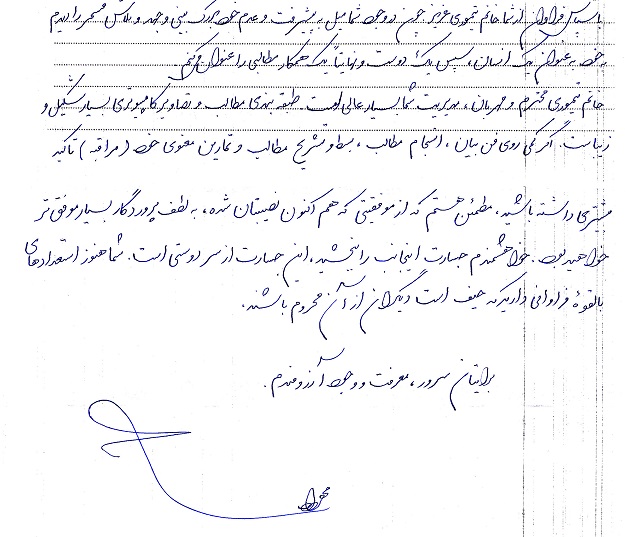 با سپاس فراوان از شما خانم تیموری عزیز چون در وجود شما میل به پیشرفت و عدم خود بزرگ بینی وجود و تلاش مستمر را دیدم
به عنوان یک انسان، سپس یک دوست و نهایتاً یک همکار مطالبی را عنوان می‌کنم.
خانم تیموری محترم و مهربان، مدیریت شما بسیار عالی است. طبقه بندی مطالب و تصاویر کامپیوتری بسیار شکیل و
زیباست. اگر کمی روی فن بیان، انسجام مطالب، بسط و تشریح مطالب و تمارین معنوی خود (مراقبه) تاکید
بیشتری داشته باشید، مطمئن هستم که از موفقیتی که هم اکنون نصیبتان شده، به لطف پروردگار بسیار موفق تر
خواهید بود. خواهشمندم جسارت اینجانب را ببخشید، این جسارت از سر دوستی است. شما هنوز استعدادهای
بالقوهٔ فراوانی دارید که حیف است دیگران از آن محروم باشند.
برایتان سرور، معرفت و وجد آرزومندم.